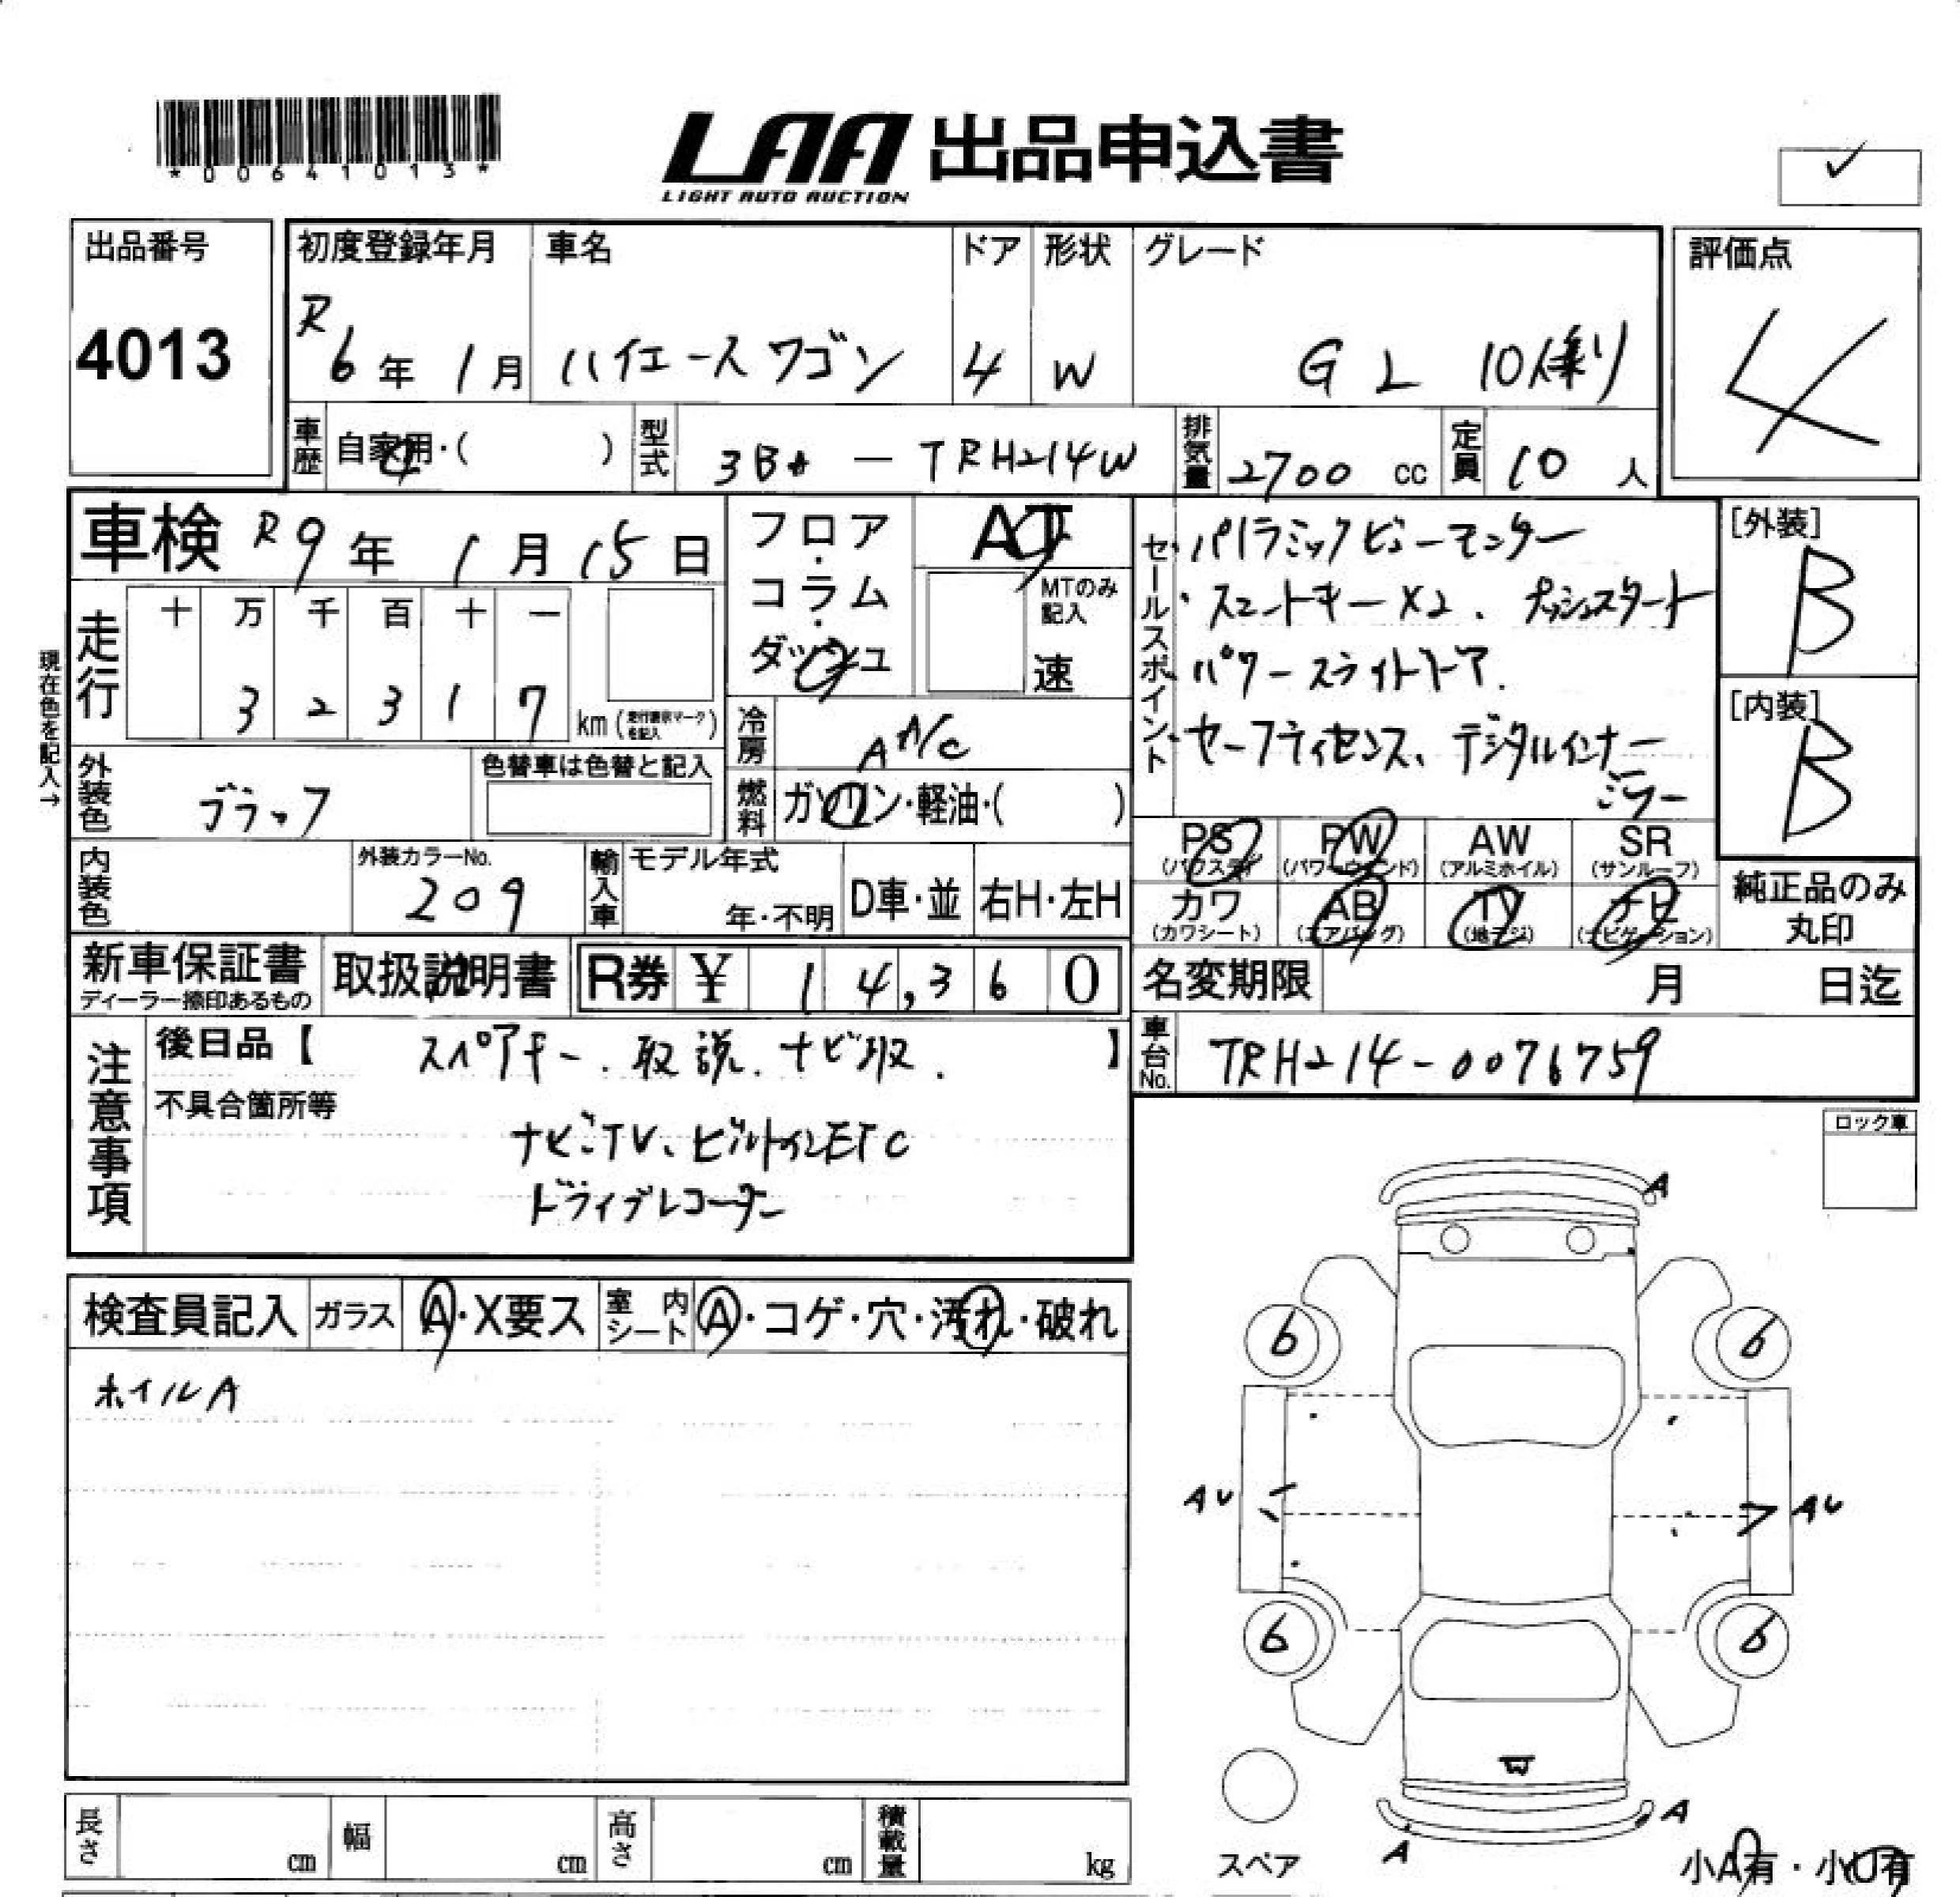 *00641013*
LAA 出品申込書
LIGHT AUTO AUCTION
✓
出品番号
4013
初度登録年月
R6年1月
車名
ハイエースワゴン
ドア
4
形状
W
グレード
GL 10人乗り
評価点
4
車歴
自家用・( )
型式
3BA-TRH214W
排気量
2700 cc
定員
10人
車検 R9年1月15日
フロア・コラム・ダッシュ
AT
MTのみ記入
速
セールスポイント
・パノラミックビューモニター
・スマートキーX2、プッシュスタート
・パワースライドドア.
・セーフティセンス、デジタルインナー
ミラー
[外装]
B
[内装]
B
現在色を記入→
走行
十 万 千 百 十 一
3 2 3 1 7
km(走行表示マークを記入)
冷房
AA/C
外装色
ブラック
色替車は色替と記入
燃料
ガソリン・軽油・( )
PS (パワステ)
PW (パワーウインド)
AW (アルミホイル)
SR (サンルーフ)
カワ (カワシート)
AB (エアバッグ)
TV (地デジ)
ナビ (ナビゲーション)
純正品のみ
丸印
内装色
外装カラーNo.
209
輸入車
モデル年式
年・不明
D車・並
右H・左H
新車保証書
ディーラー捺印あるもの
取扱説明書
R券 ¥ 14,360
名変期限 月 日迄
車台No.
TRH214-0076759
注意事項
後日品【スペアキー.取説.ナビ取.】
不具合箇所等
ナビ・TV、ビルトインETC
ドライブレコーダー
ロック車
検査員記入
ガラス A・X要ス
室内シート A・コゲ・穴・汚れ・破れ
ホイルA
A
6
6
AU
AU
6
6
W
A
A
スペア
小A有・小U有
長さ cm
幅 cm
高さ cm
積載量 kg